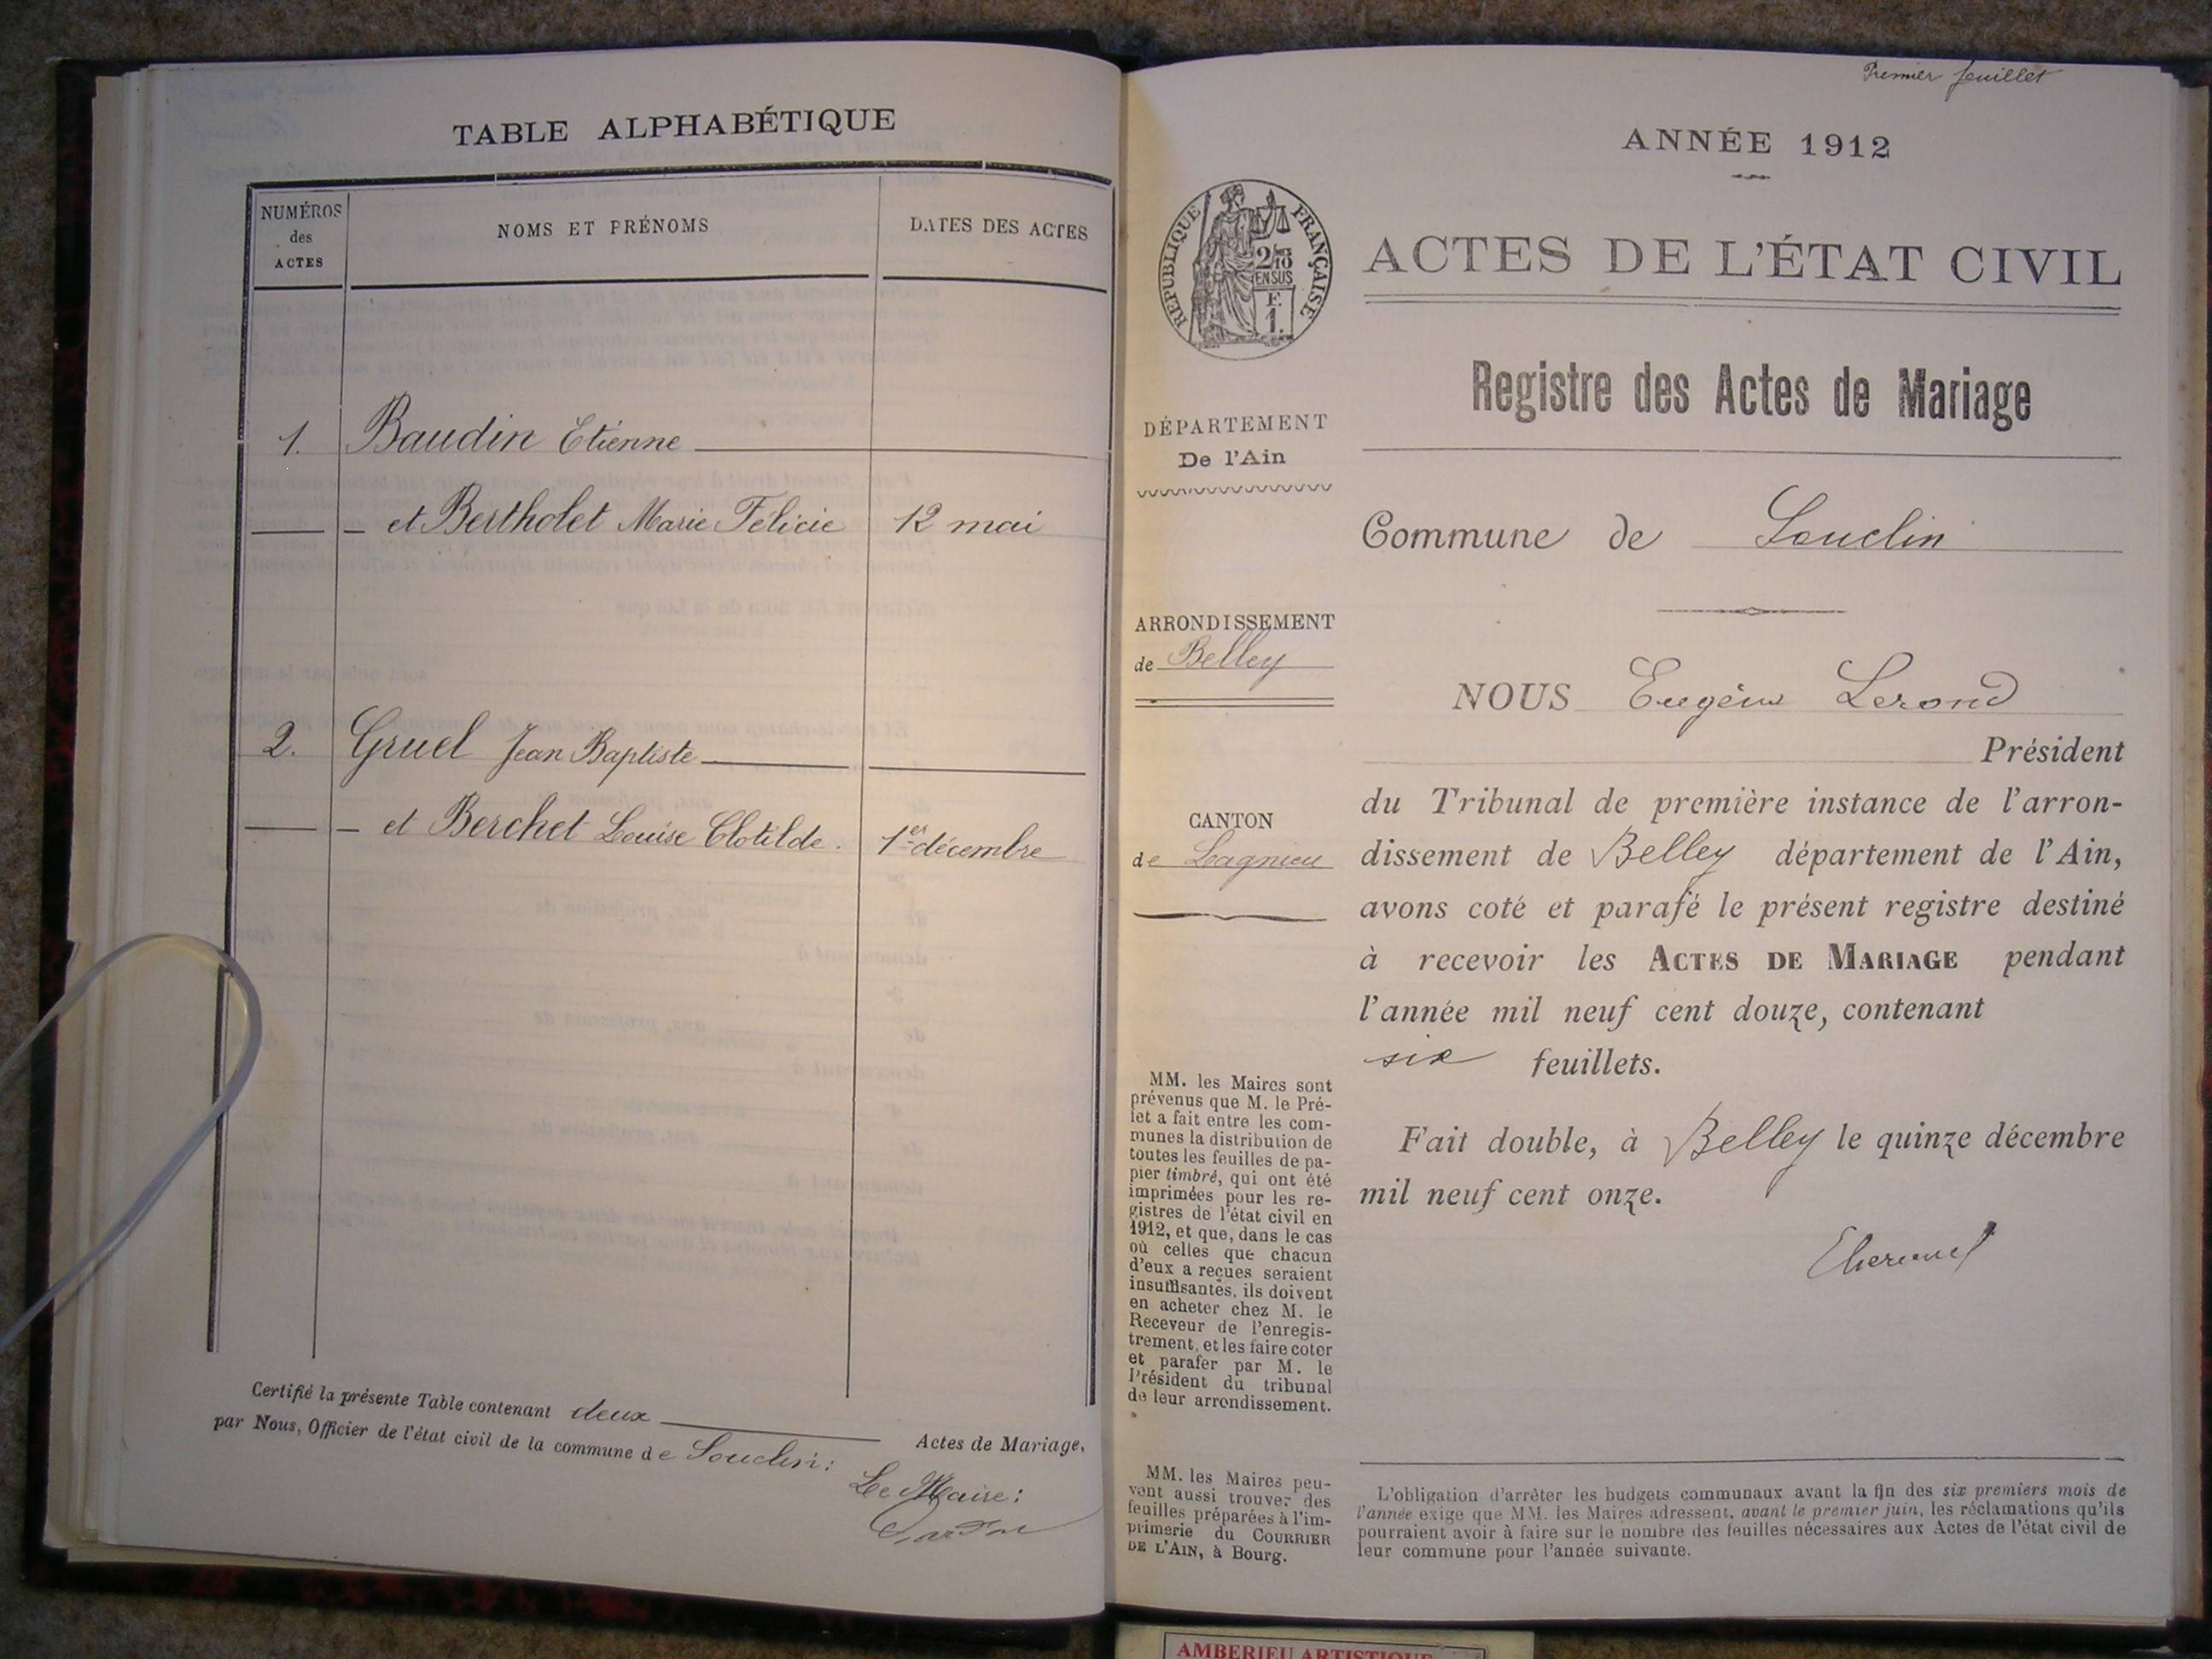 TABLE ALPHABÉTIQUE
NUMÉROS
des
ACTES
NOMS ET PRÉNOMS
DATES DES ACTES
1. Baudin Etienne
et Bertholet Marie Félicie 12 mai
2. Gruel Jean Baptiste
et Berchet Louise Clotilde. 1er décembre
Certifié la présente Table contenant deux Actes de Mariage,
par Nous, Officier de l'état civil de la commune de Souclin:
Le Maire:
Premier feuillet
ANNÉE 1912
RÉPUBLIQUE FRANÇAISE
2/10
EN SUS
F.
1.
ACTES DE L'ÉTAT CIVIL
Registre des Actes de Mariage
DÉPARTEMENT
De l'Ain
Commune de Souclin
ARRONDISSEMENT
de Belley
CANTON
de Lagnieu
MM. les Maires sont
prévenus que M. le Pré-
fet a fait entre les com-
munes la distribution de
toutes les feuilles de pa-
pier timbré, qui ont été
imprimées pour les re-
gistres de l'état civil en
1912, et que, dans le cas
où celles que chacun
d'eux a reçues seraient
insuffisantes, ils doivent
en acheter chez M. le
Receveur de l'enregis-
trement, et les faire coter
et parafer par M. le
Président du tribunal
de leur arrondissement.
MM. les Maires peu-
vent aussi trouver des
feuilles préparées à l'im-
primerie du COURRIER
DE L'AIN, à Bourg.
NOUS Eugène Lerond
Président
du Tribunal de première instance de l'arron-
dissement de Belley département de l'Ain,
avons coté et parafé le présent registre destiné
à recevoir les ACTES DE MARIAGE pendant
l'année mil neuf cent douze, contenant
six feuillets.
Fait double, à Belley le quinze décembre
mil neuf cent onze.
L'obligation d'arrêter les budgets communaux avant la fin des six premiers mois de
l'année exige que MM. les Maires adressent, avant le premier juin, les réclamations qu'ils
pourraient avoir à faire sur le nombre des feuilles nécessaires aux Actes de l'état civil de
leur commune pour l'année suivante.
AMBERIEU ARTISTIQUE